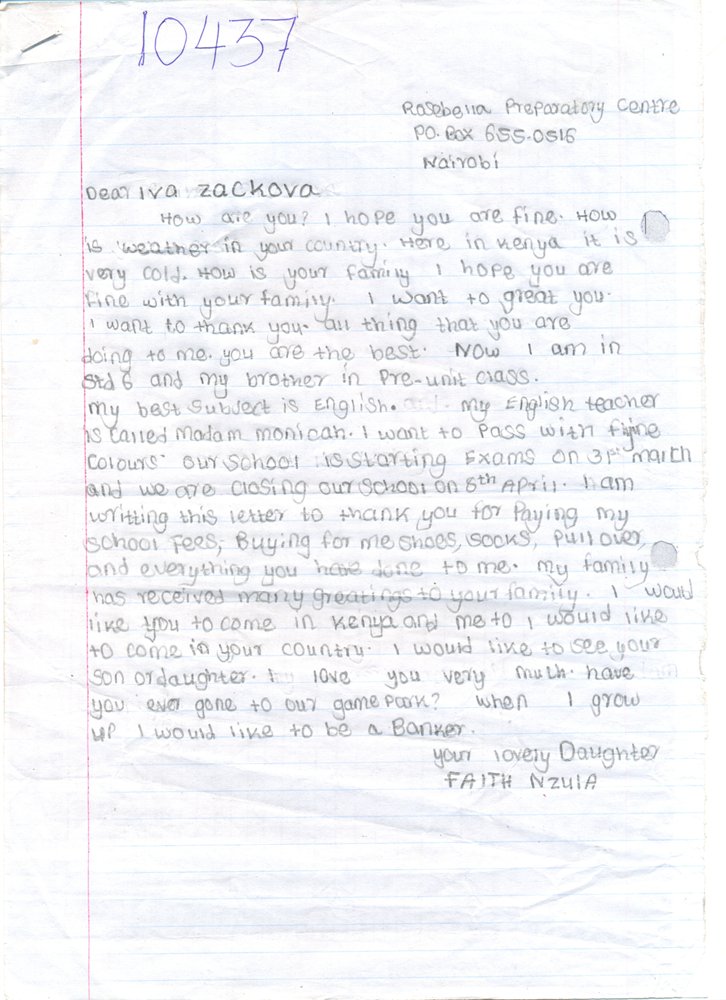 10437
Rosebella Preparatory Centre
P.O. Box 655-0516
Nairobi
Dear Iva Zackova
How are you? I hope you are fine. How
is weather in your country. Here in Kenya it is
very cold. How is your family I hope you are
fine with your family. I want to great you.
I want to thank you. all thing that you are
doing to me. you are the best. Now I am in
std 6 and my brother in Pre-unit class.
my best subject is English. and. my English teacher
is called madam monicah. I want to pass with fine
colours. our school is starting Exams on 31st march
and we are closing our school on 8th April. I am
writting this letter to thank you for Paying my
school Fees, Buying for me shoes, socks, Pull over,
and everything you have done to me. my family
has received many greatings to your family. I would
like you to come in Kenya and me to I would like
to come in your country. I would like to see your
son or daughter. I love you very much. have
you ever gone to our game park? when I grow
up I would like to be a Banker.
your lovely Daughter
FAITH NZULA